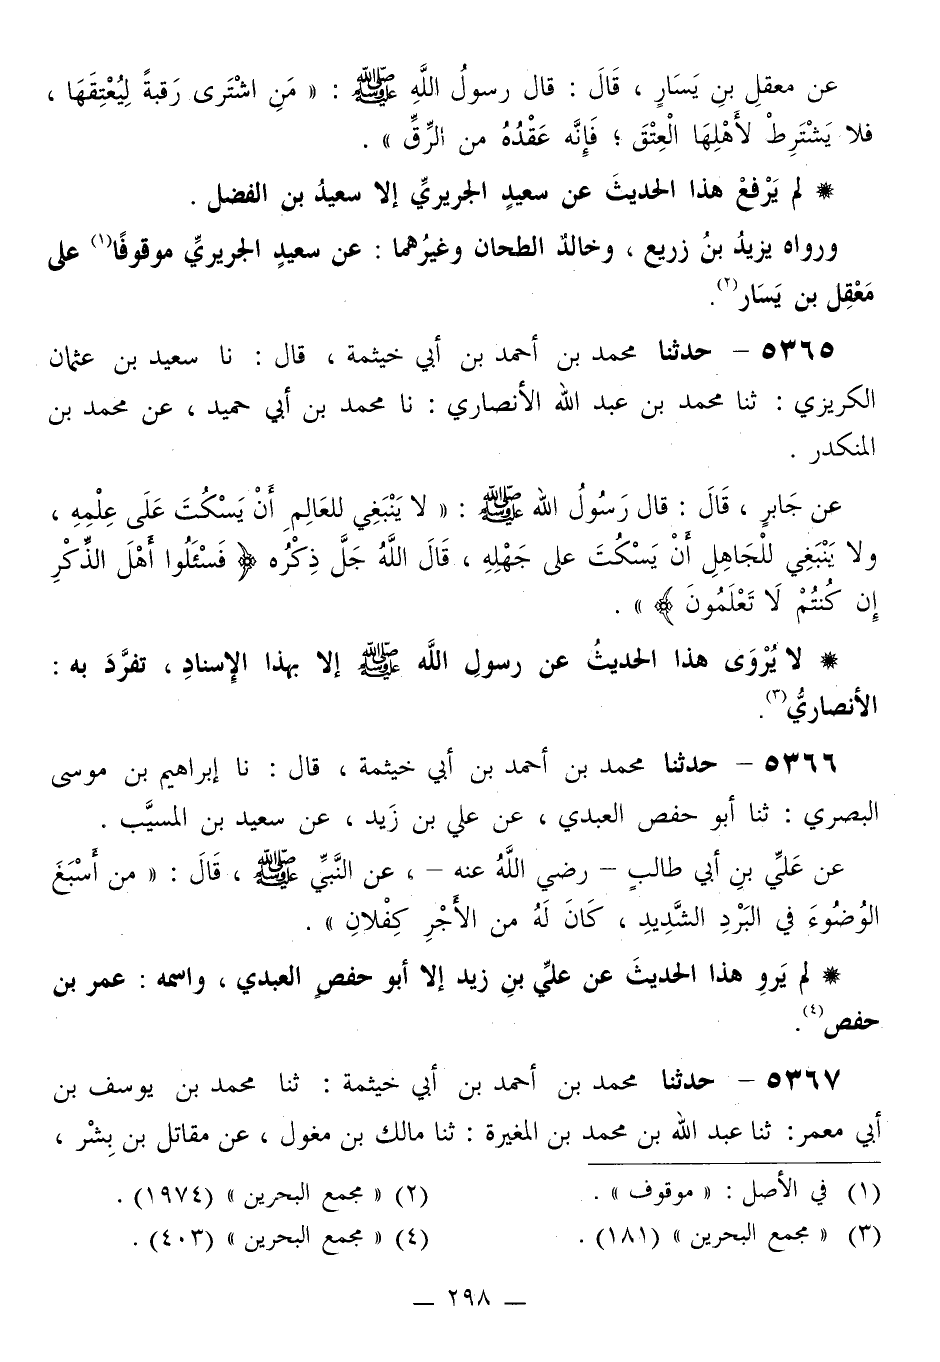 عن معقلِ بنِ يَسَارٍ ، قَالَ : قال رسولُ اللَّهِ ﷺ : « مَنِ اشْتَرى رَقبةً لِيُعْتِقَهَا ،
فلا يَشْتَرِطْ لأَهْلِهَا الْعِتْقَ ؛ فَإِنَّه عَقْدُهُ من الرِّقِّ » .
* لم يَرْفعْ هذا الحديثَ عن سعيدٍ الجريريِّ إلا سعيدُ بن الفضل .
ورواه يزيدُ بنُ زريع ، وخالدُ الطحان وغيرُهما : عن سعيدٍ الجريريِّ موقوفًا(١) على
مَعْقِل بن يَسَار(٢).
٥٣٦٥ – حدثنا محمد بن أحمد بن أبي خيثمة ، قال : نا سعيد بن عثمان
الكريزي : ثنا محمد بن عبد الله الأنصاري : نا محمد بن أبي حميد ، عن محمد بن
المنكدر .
عن جَابرٍ ، قَالَ : قال رَسُولُ الله ﷺ : « لا يَنْبَغِي للعالِمِ أَنْ يَسْكُتَ عَلَى عِلْمِهِ ،
ولا يَنْبَغِي للْجَاهِلِ أَنْ يَسْكُتَ على جَهْلِهِ ، قَالَ اللَّهُ جَلَّ ذِكْرُه ﴿ فَسْئَلُوا أَهْلَ الذِّكْرِ
إِن كُنتُمْ لَا تَعْلَمُونَ ﴾ » .
* لا يُرْوَى هذا الحديثُ عن رسولِ اللَّه ﷺ إلا بهذا الإسنادِ ، تفرَّدَ به :
الأنصاريُّ(٣).
٥٣٦٦ – حدثنا محمد بن أحمد بن أبي خيثمة ، قال : نا إبراهيم بن موسى
البصري : ثنا أبو حفص العبدي ، عن علي بن زَيد ، عن سعيد بن المسيَّب .
عن عَليِّ بنِ أبي طالبٍ – رضي اللَّهُ عنه – ، عن النَّبيِّ ﷺ ، قَالَ : « من أَسْبَغَ
الوُضُوءَ في البَرْدِ الشَّدِيدِ ، كَانَ لَهُ من الأَجْرِ كِفْلانِ » .
* لم يَروِ هذا الحديثَ عن عليِّ بنِ زيد إلا أبو حفصٍ العبدي ، واسمه : عمر بن
حفص(٤).
٥٣٦٧ – حدثنا محمد بن أحمد بن أبي خيثمة : ثنا محمد بن يوسف بن
أبي معمر: ثنا عبد الله بن محمد بن المغيرة : ثنا مالك بن مغول ، عن مقاتل بن بِشْر ،
(١) في الأصل : « موقوف » .
(٢) « مجمع البحرين » (١٩٧٤) .
(٣) « مجمع البحرين » (١٨١) .
(٤) « مجمع البحرين » (٤٠٣) .
— ٢٩٨ —